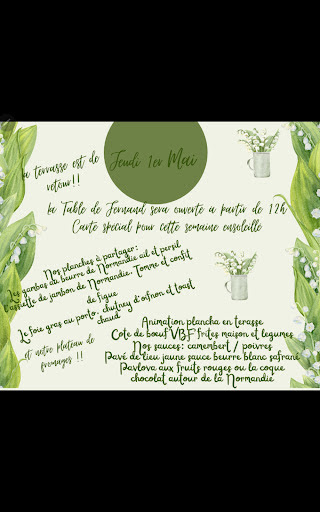 la terrasse est de
retour!!
Jeudi 1er Mai
la Table de Fernand sera ouverte a partir de 12h
Carte special pour cette semaine ensoleillé
Nos planches à partager:
Les gambas au beurre de Normandie ail et persil
L'assiette de jambon de Normandie, Tomme et confit
de figue
Le foie gras au porto, chutney d'oignon et toast
chaud
...et notre plateau de
fromages !!
Animation plancha en terasse
Cote de bœuf VBF frites maison et legumes
Nos sauces: camembert / poivres
Pavé de lieu jaune sauce beurre blanc safrané
Pavlova aux fruits rouges ou la coque
chocolat autour de la Normandie